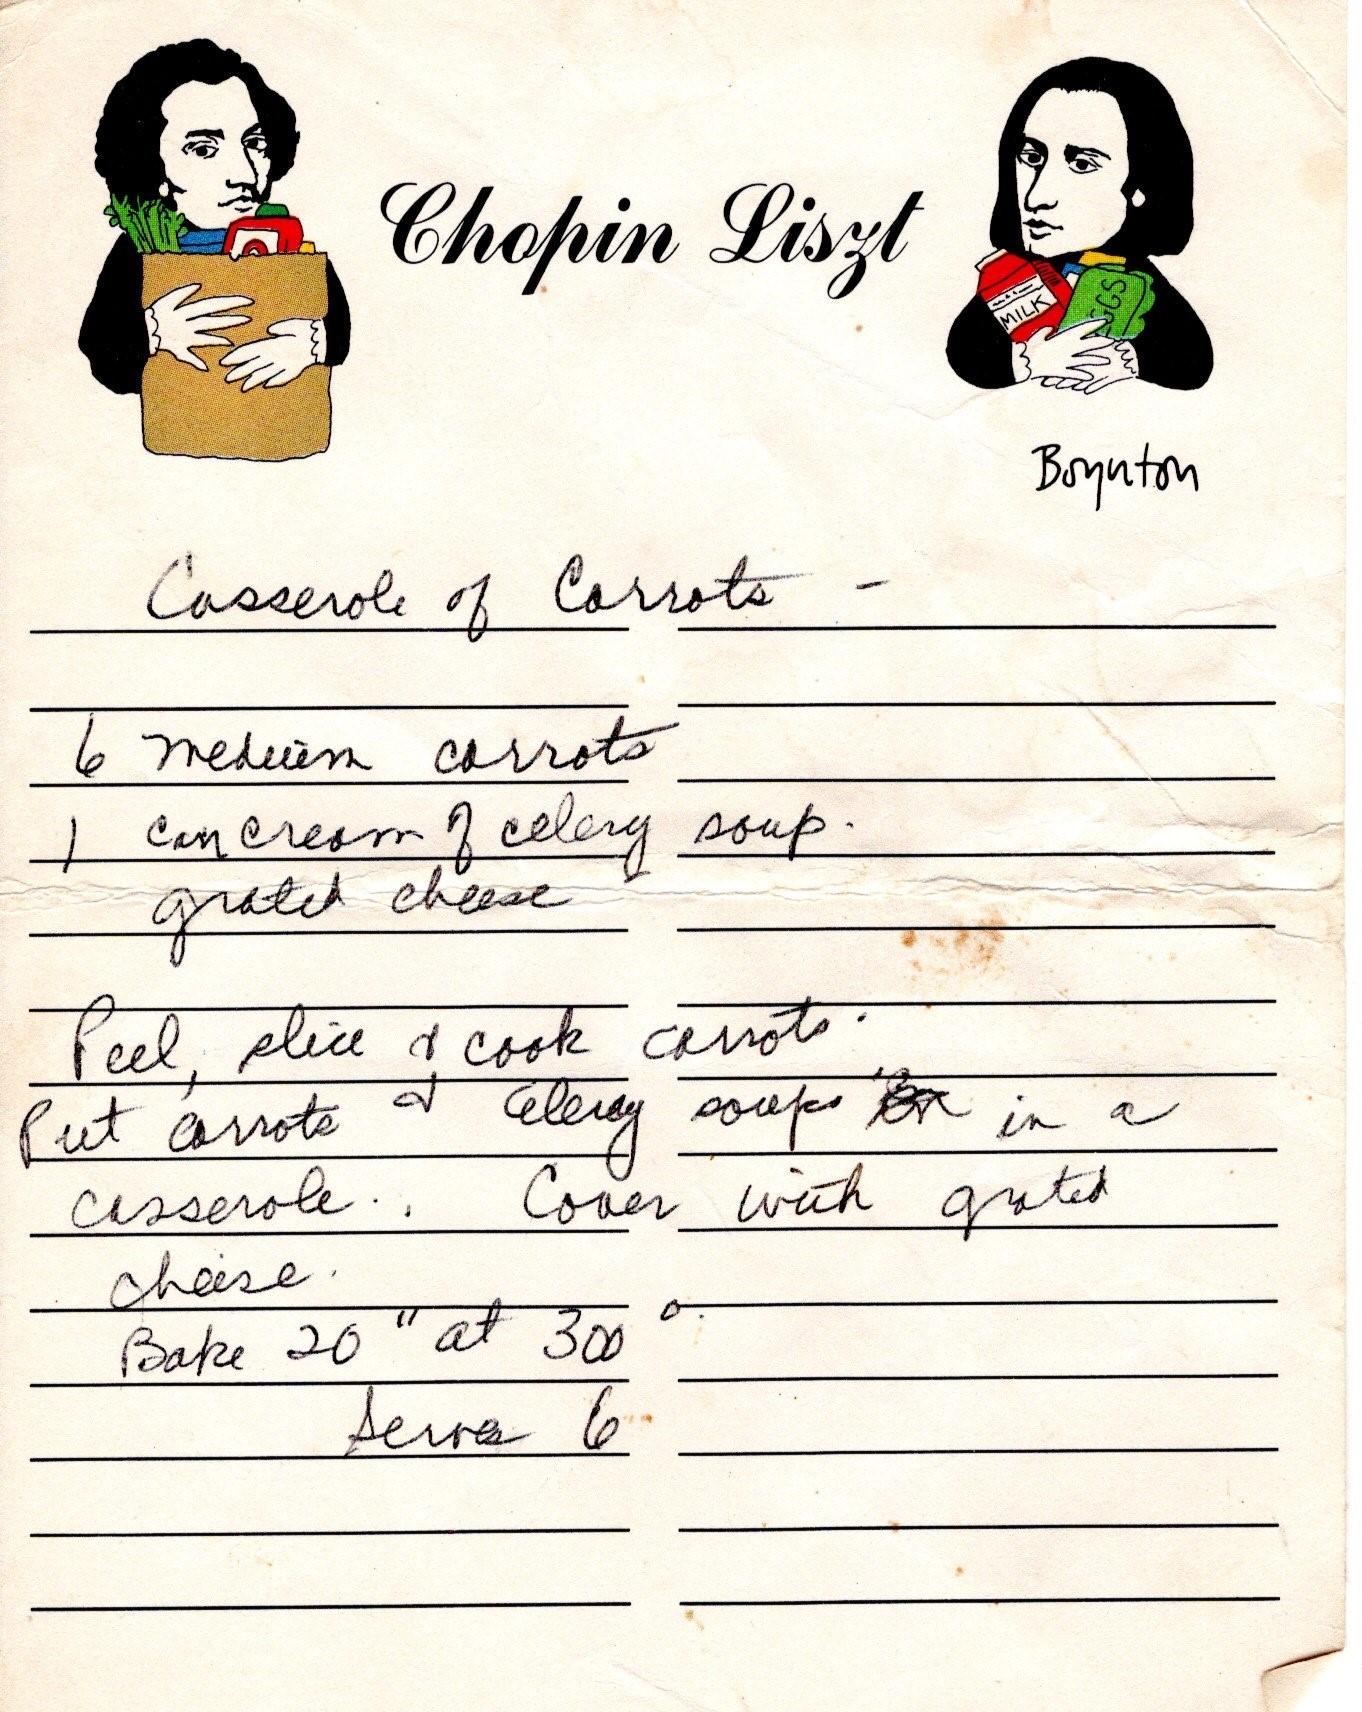 Chopin Liszt
MILK
GGS
Boynton
Casserole of Carrots -
6 medium carrots
1 can cream of celery soup.
grated cheese
Peel, slice & cook carrots.
Put carrots & Celery soup in a
casserole. . Cover with grated
cheese.
Bake 20 " at 300 °.
Serves 6